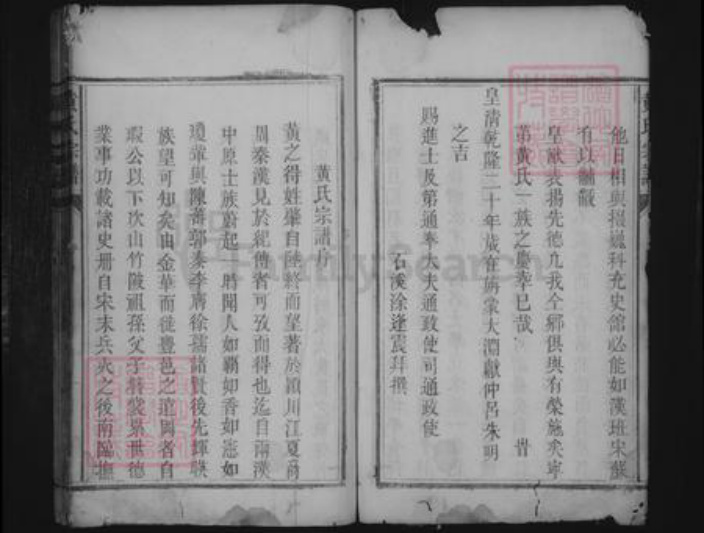 他日相與掇巍科充史館必能如漢班宋蘇
有以黼黻
皇猷表揚先德九我仝鄉俱與有榮施矣寧
第黃氏一族之慶幸已哉 旹
皇清乾隆二十年歲在旃蒙大淵獻仲呂朱明
之吉
賜進士及第通奉大夫通政使司通政使
石溪涂逢震拜撰
黃氏宗譜序
黃之得姓肇自陸終而望著於潁川江夏爾
周秦漢見於紀傳者可攷而得也迄自兩漢
中原士族蔚起 時聞人如霸如香如憲如
瓊輩與陳蕃郭泰李膺徐孺諸賢後先輝暎
族望可知矣由金華而徙豐邑之道岡者自
瑕公以下次山竹陂祖孫父子簪裳累世德
業事功載諸史册自宋末兵火之後南臨撫
黃氏宗譜
FamilySearch